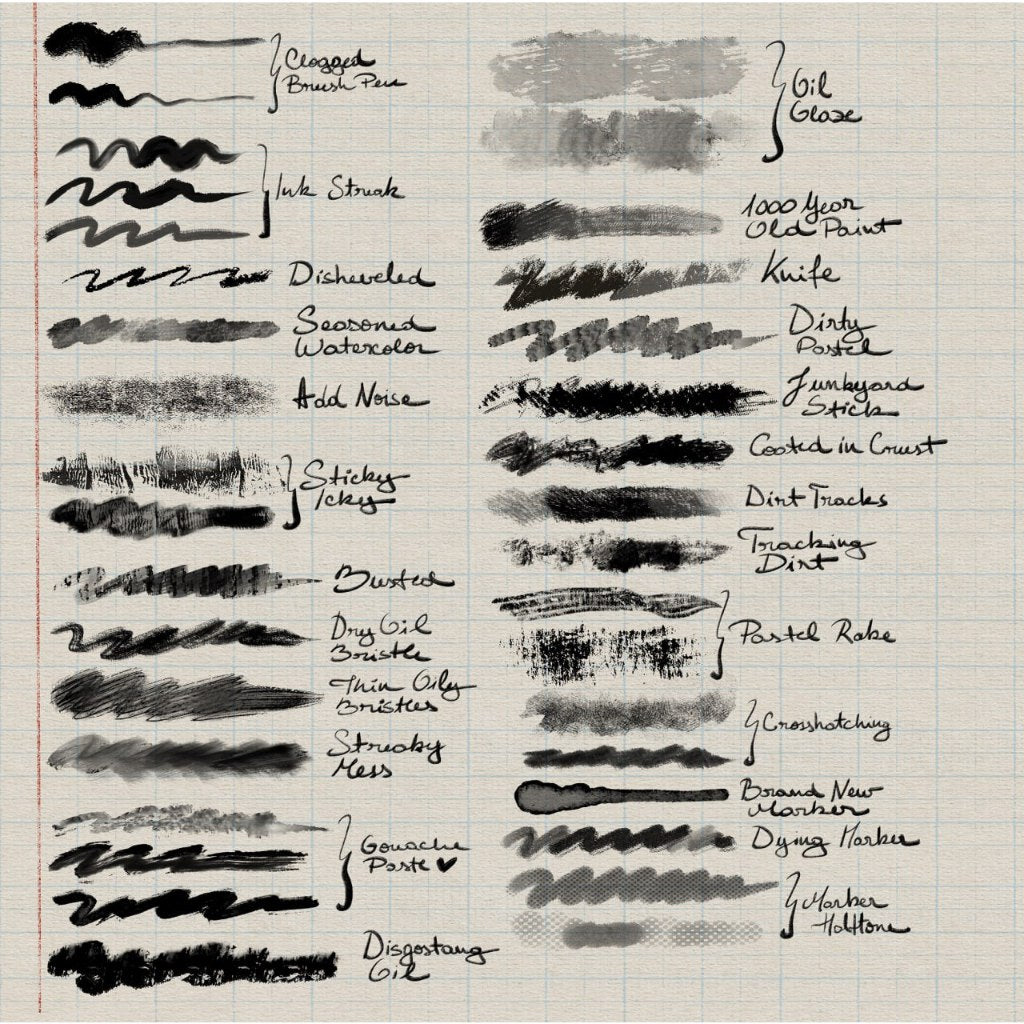 Clogged
Brush Pen
Ink Streak
Disheveled
Seasoned
Watercolor
Add Noise
Sticky
Icky
Busted
Dry Oil
Bristle
Thin Oily
Bristles
Streaky
Mess
Gouache
Paste ♥
Disgostang
Oil
Oil
Glaze
1000 Year
Old Paint
Knife
Dirty
Pastel
Junkyard
Stick
Coated in Crust
Dirt Tracks
Tracking
Dirt
Pastel Rake
Crosshatching
Brand New
Marker
Dying Marker
Marker
Halftone